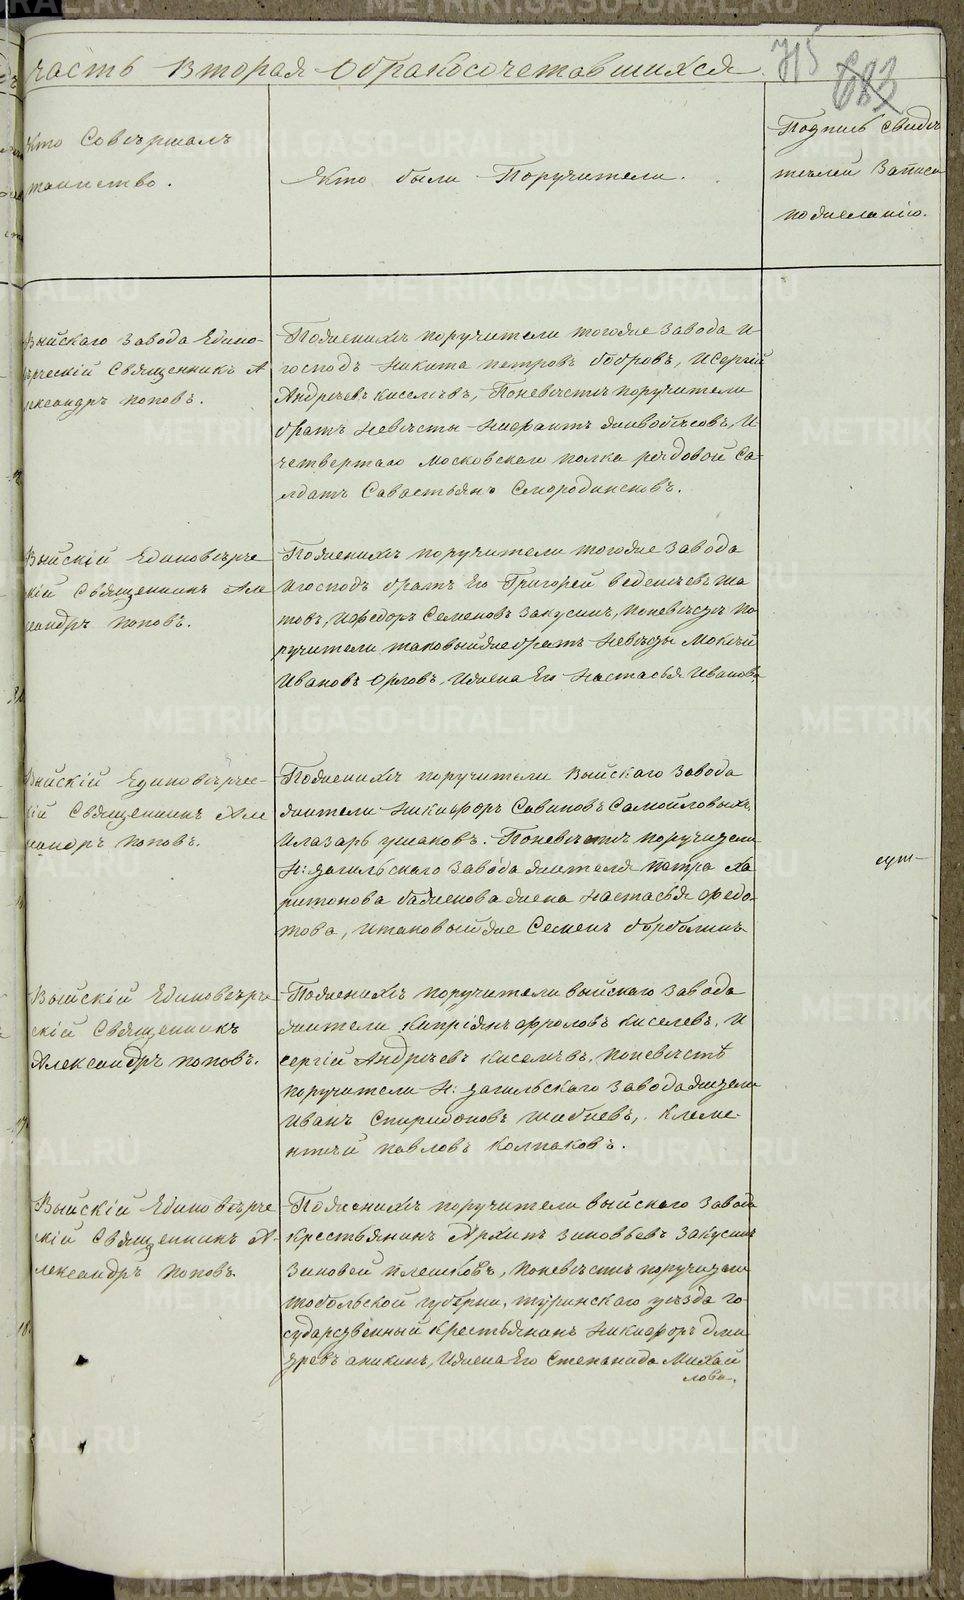 часть вторая обракосочетавшихся
715
683
Кто Совершалъ
таинство.
Кто были Поручители.
Подпись свиде
телей Записи
пожеланию.
Выйскаго завода Едино-
верческій Священникъ А
лександръ поповъ.
Поженихѣ поручители тогоже завода и
господъ Никита петровъ бобровъ, исергій
Андреевъ киселевъ, Поневѣстѣ поручители
братъ Невѣсты
четвертаго московскаго полка редовой са-
лдатъ Савастьянъ Смородинсковъ.
Выйскій Единовѣрче
скій Священникъ Але
ксандръ поповъ.
Поженихѣ поручители тогоже завода
игосподъ братъ Его Григорей веденеевъ ша
товъ, ифедоръ Семеновъ закусинъ, поневѣстѣ по
ручители таковыйже братъ невѣсты Мокѣй
Ивановъ Орловъ, ижена Его Настасья Иванова
Выйскій Единовѣрчес-
кій Священникъ Але
ксандръ поповъ.
Поженихѣ поручители Выйскаго завода
жители Никифоръ Савиновъ Самойловыхъ
илазарь ушаковъ. Поневѣстѣ поручители
Н: тагильскаго завода жителя петра ха
ритонова баженова жена настасья федо
това, итаковыйже Семенъ борболинъ
Выйскій Единовѣрче
скій Священникъ
Александръ поповъ.
Поженихѣ поручители выйскаго завода
жители Кипріянъ фроловъ киселевъ, и
сергій Андреевъ киселевъ, поневѣстѣ
поручители Н: тагильскаго завода жители
иванъ спиридоновъ шабневъ, клеме-
нтей павловъ колпаковъ.
Выйскій Единовѣрче
скій Священникъ А-
лександръ поповъ
Поженихѣ поручители выйскаго завода
крестьянинъ Архипъ зиновьевъ закусинъ
зиновей плешковъ, поневѣстѣ поручители
тобольской губерни, туринскаго уезда го-
сударственный крестьянинъ Никифоръ дми
тревъ аникинъ, ижена Его степанида Михай
лова.
METRIKI.GASO-URAL.RU